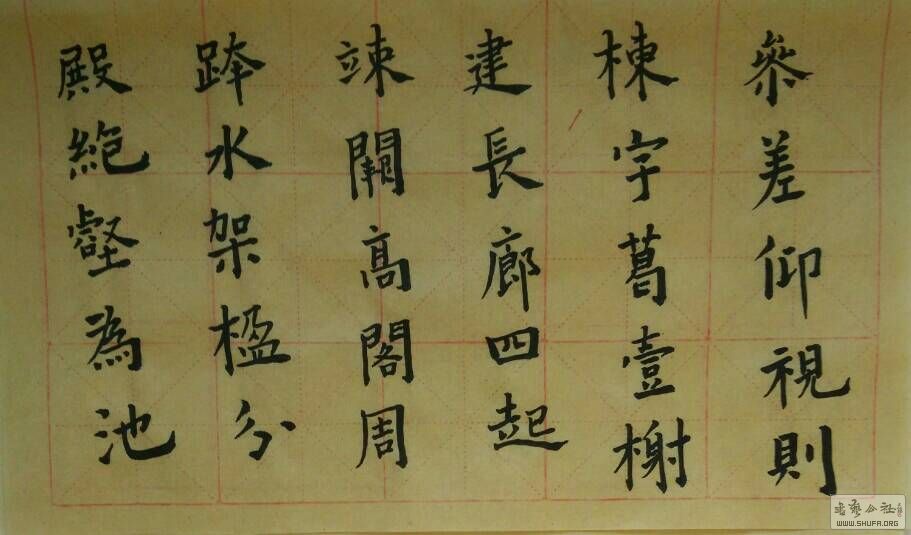 殿絶壑為池
跨水架楹分
竦闕高閣周
建長廊四起
棟宇葛壹榭
參差仰視則
書藝公社
WWW.SHUFA.ORG